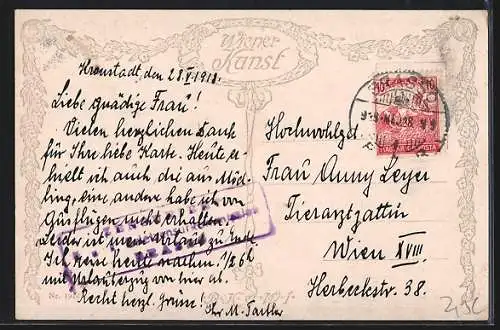 Wiener
Kunst
Kronstadt, den 28.V.1918.
Liebe gnädige Frau!
Vielen herzlichen Dank
für Ihre liebe Karte. Heute er-
hielt ich auch die aus Möd-
ling, eine andere habe ich von
Ausflügen nicht erhalten.
Leider ist mein Urlaub zu Ende.
Ich reise heute nachm. 1/2 6h
mit Urlauberzug von hier ab.
Recht herzl. Grüsse!
Ihr M.
Hochwohlgeb.
Frau Anny Leyer
Tierarztgattin
Wien XVIII.
Herbeckstr. 38.
10 10
MAGYAR KIR. POSTA
ZENSUR
Nr.
2,50